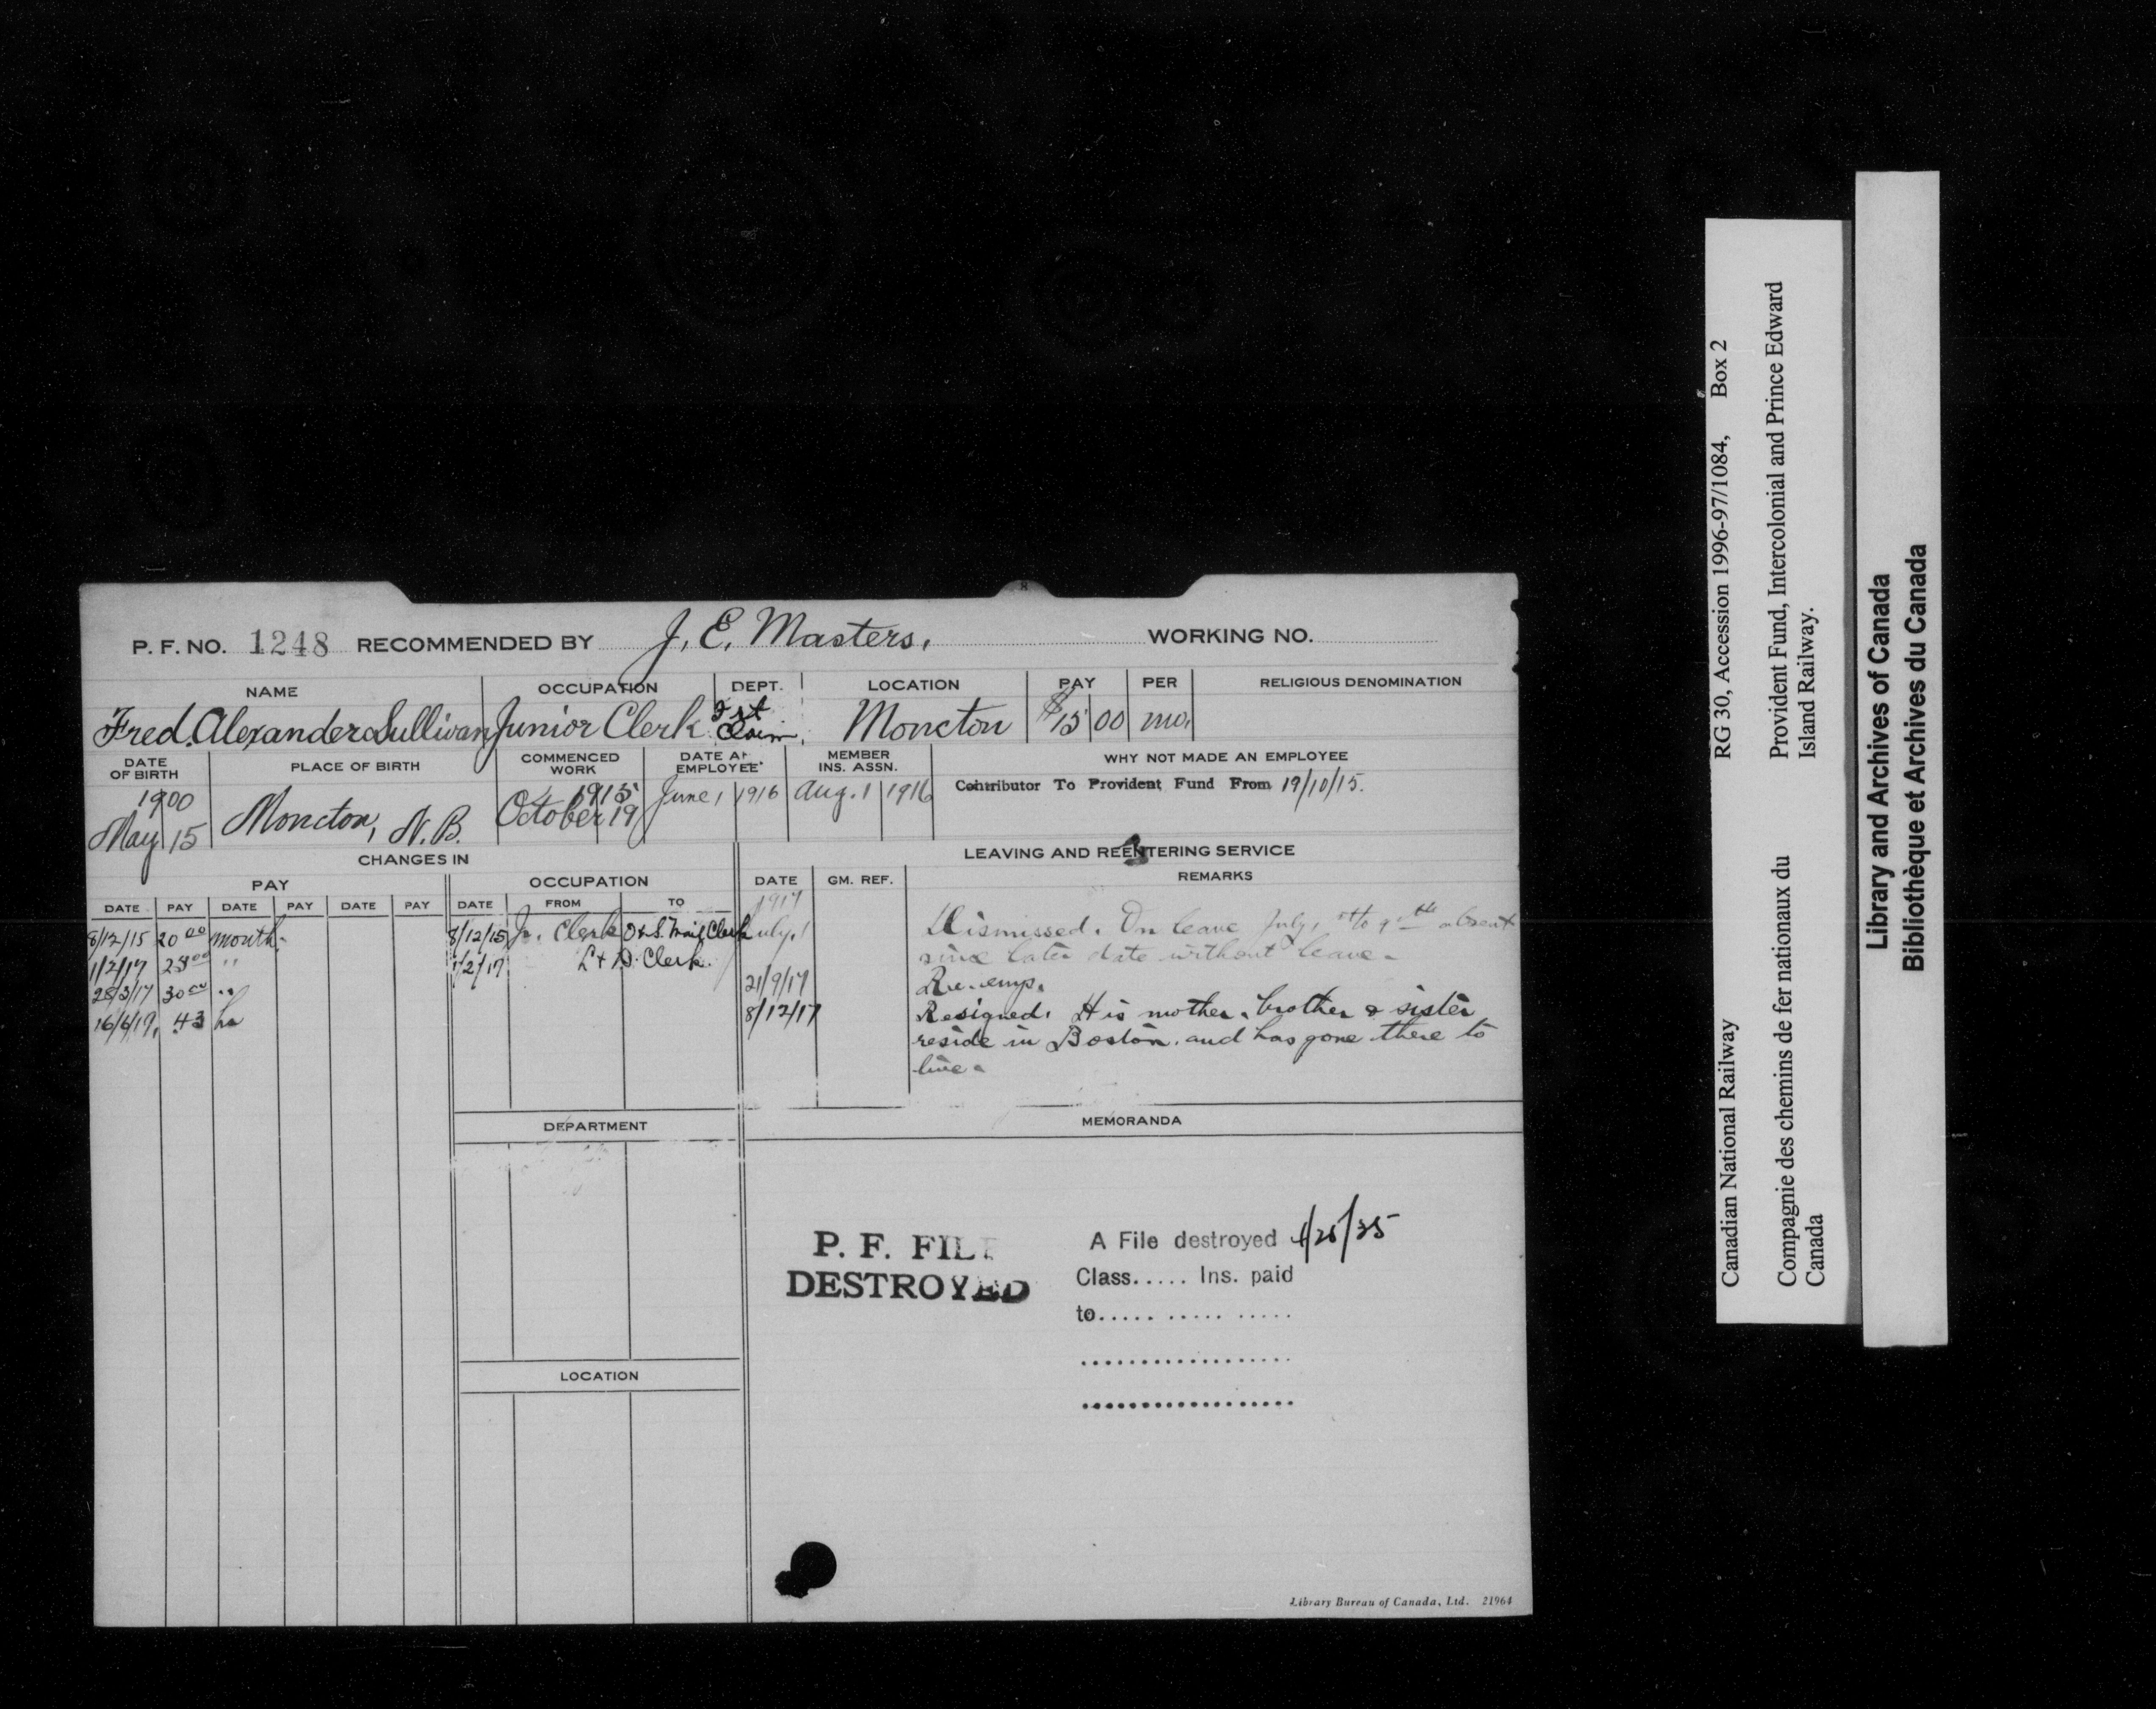 P. F. NO. 1248 RECOMMENDED BY J. E. Masters. WORKING NO.
NAME OCCUPATION DEPT. LOCATION PAY PER RELIGIOUS DENOMINATION
Fred. Alexander Sullivan Junior Clerk Frt Claim. Moncton $15 00 mo.
DATE OF BIRTH PLACE OF BIRTH COMMENCED WORK DATE AS EMPLOYEE MEMBER INS. ASSN. WHY NOT MADE AN EMPLOYEE
1900 1915 June 1 1916 Aug. 1 1916 Contributor To Provident Fund From 19/10/15.
May 15 Moncton, N.B. October 19
CHANGES IN LEAVING AND REENTERING SERVICE
PAY OCCUPATION DATE GM. REF. REMARKS
DATE PAY DATE PAY DATE PAY DATE FROM TO 1917
8/12/15 20 00 month. 8/12/15 Jr. Clerk O+S. Mail Clerk July 1 Dismissed. On leave July, 1st to 9th absent
1/2/17 25 00 " 1/2/17 L+D. Clerk. since later date without leave.
28/3/17 30 00 " 21/9/17 Re. emp.
16/6/19, 43 hr 8/12/17 Resigned. His mother, brother & sister
reside in Boston. and has gone there to
live.
DEPARTMENT MEMORANDA
P. F. FILE
DESTROYED
A File destroyed /25/35
Class..... Ins. paid
to..... ..... .....
..................
..................
LOCATION
Library Bureau of Canada, Ltd. 21964
Canadian National Railway RG 30, Accession 1996-97/1084, Box 2
Compagnie des chemins de fer nationaux du Canada
Provident Fund, Intercolonial and Prince Edward
Island Railway.
Library and Archives of Canada
Bibliothèque et Archives du Canada